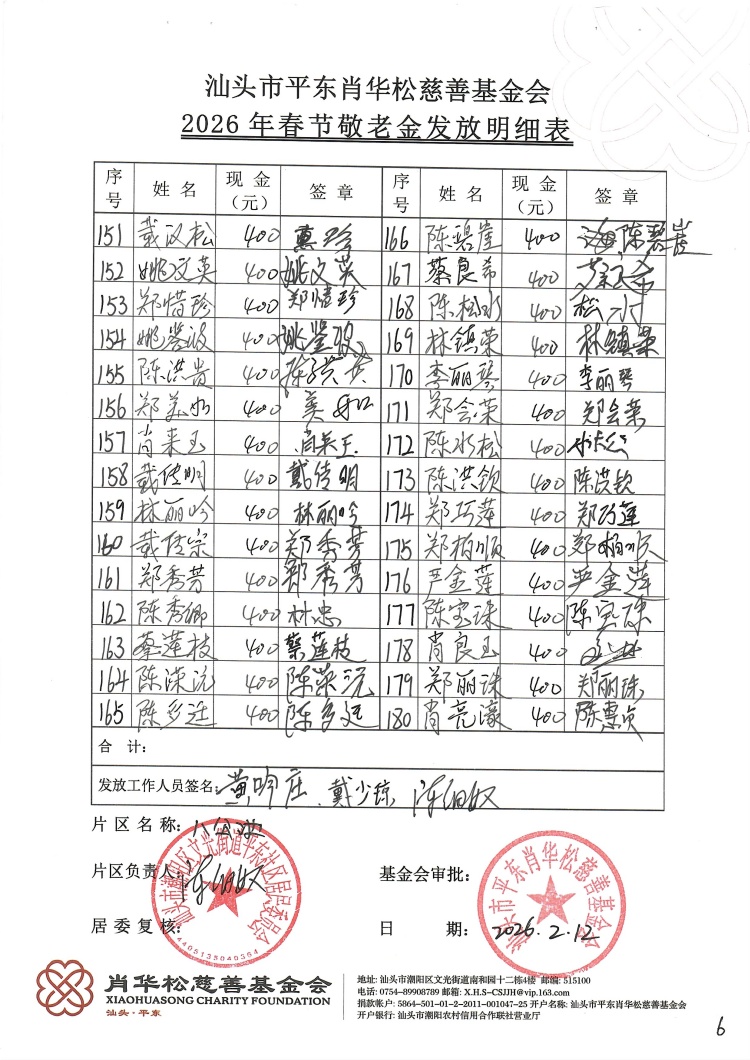 汕头市平东肖华松慈善基金会
2026年春节敬老金发放明细表
序号 姓名 现金（元） 签章 序号 姓名 现金（元） 签章
151 戴汉松 400 惠珍 166 陈碧崖 400 陈碧崖
152 姚文英 400 姚文英 167 蔡良希 400
153 郑惜珍 400 郑惜珍 168 陈松水 400 松水
154 姚鉴波 400 姚鉴波 169 林镇荣 400 林镇荣
155 陈洪贵 400 170 李丽琴 400 李丽琴
156 郑美如 400 美如 171 郑会荣 400 郑会荣
157 肖来玉 400 172 陈水松 400
158 戴传明 400 戴传明 173 陈洪钦 400 陈洪钦
159 林丽吟 400 林丽吟 174 郑巧莲 400 郑巧莲
160 戴传宗 400 郑秀芳 175 郑柏顺 400 郑柏顺
161 郑秀芳 400 郑秀芳 176 严金莲 400 严金莲
162 陈秀卿 400 林忠 177 陈宝珠 400 陈宝珠
163 蔡莲枝 400 蔡莲枝 178 肖良玉 400
164 陈深沅 400 179 郑丽珠 400 郑丽珠
165 陈乡廷 400 陈乡廷 180 肖亮濠 400 陈惠贞
合计：
发放工作人员签名：黄吟庄、戴少琼、陈细奴
片区名称：
片区负责人：陈细奴 基金会审批：
居委复核： 日期：2026.2.12
汕头市潮阳区文光街道平东社区居民委员会
4405135040364
汕头市平东肖华松慈善基金会
肖华松慈善基金会
XIAOHUASONG CHARITY FOUNDATION
汕头·平东
地址: 汕头市潮阳区文光街道南和园十二栋4楼 邮编: 515100
电话: 0754-89908789 邮箱: X.H.S-CSJJH@vip.163.com
捐款帐户: 5864-501-01-2-2011-001047-25 开户名称: 汕头市平东肖华松慈善基金会
开户银行: 汕头市潮阳农村信用合作联社营业厅
6